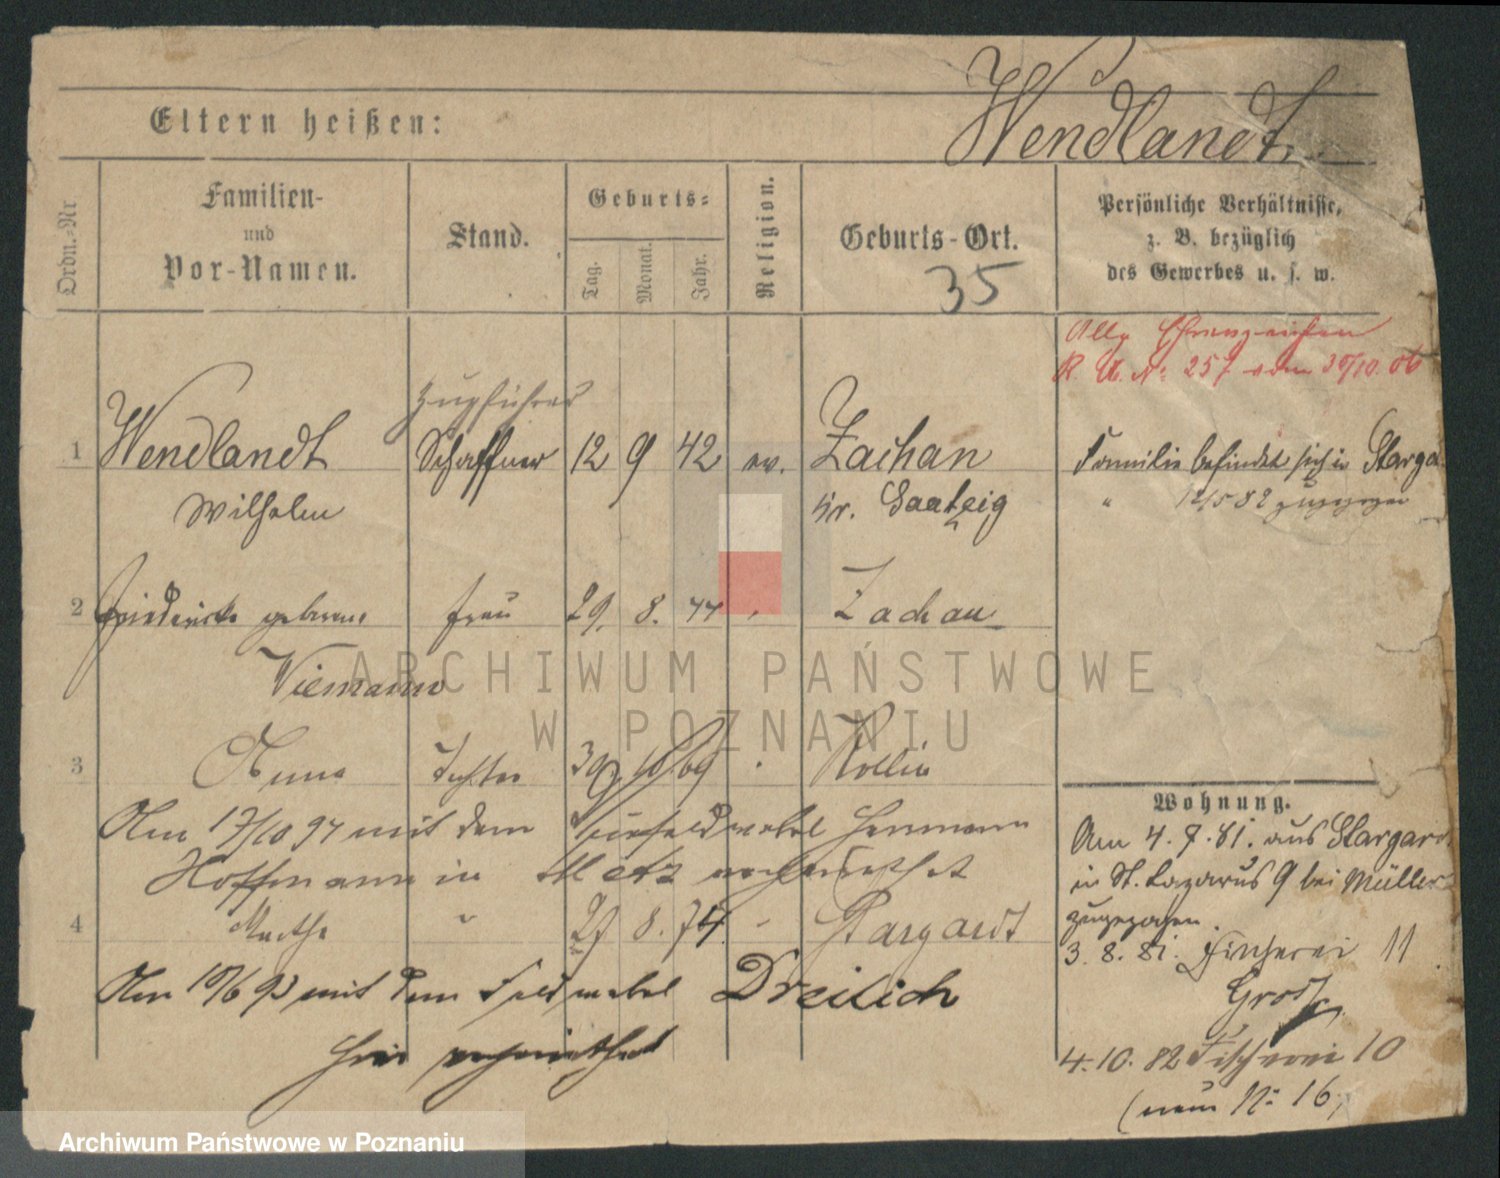 Wendlandt.
Eltern heißen:
Ordn.-Nr
Familien-
und
Vor-Namen.
Stand.
Geburts-
Tag.
Monat.
Jahr.
Religion.
Geburts-Ort.
35
Persönliche Verhältnisse,
z. B. bezüglich
des Gewerbes u. s. w.
Allg. Ehrenzeichen
R. A. No 257 vom 30/10. 06
Zugführer
1 Wendlandt Schaffner 12 9 42 ev. Zachan
Wilhelm Kr. Saatzig
Familie befindet sich in Starga
" 12/5 82 zugezogen
2 Friedericke geborene Frau 29. 8. 44 " Zachan
Niemann
3 Anna Tochter 30 10 69 " Kollin
Am 17/10 94 mit dem Vicefeldwebel Hermann
Hoffmann in Metz verheirathet
4 Marthe " 27 8. 74. " Stargardt
Am 10/6 93 mit dem Feldwebel Dreilich
hier verheirathet
Wohnung.
Am 4. 7. 81. aus Stargard
in St. Lazarus 9 bei Müller
zugezogen.
3. 8. 81. Fischerei 11
4. 10. 82 Fischerei 10
(neue No 16)
ARCHIWUM PAŃSTWOWE
W POZNANIU
Archiwum Państwowe w Poznaniu